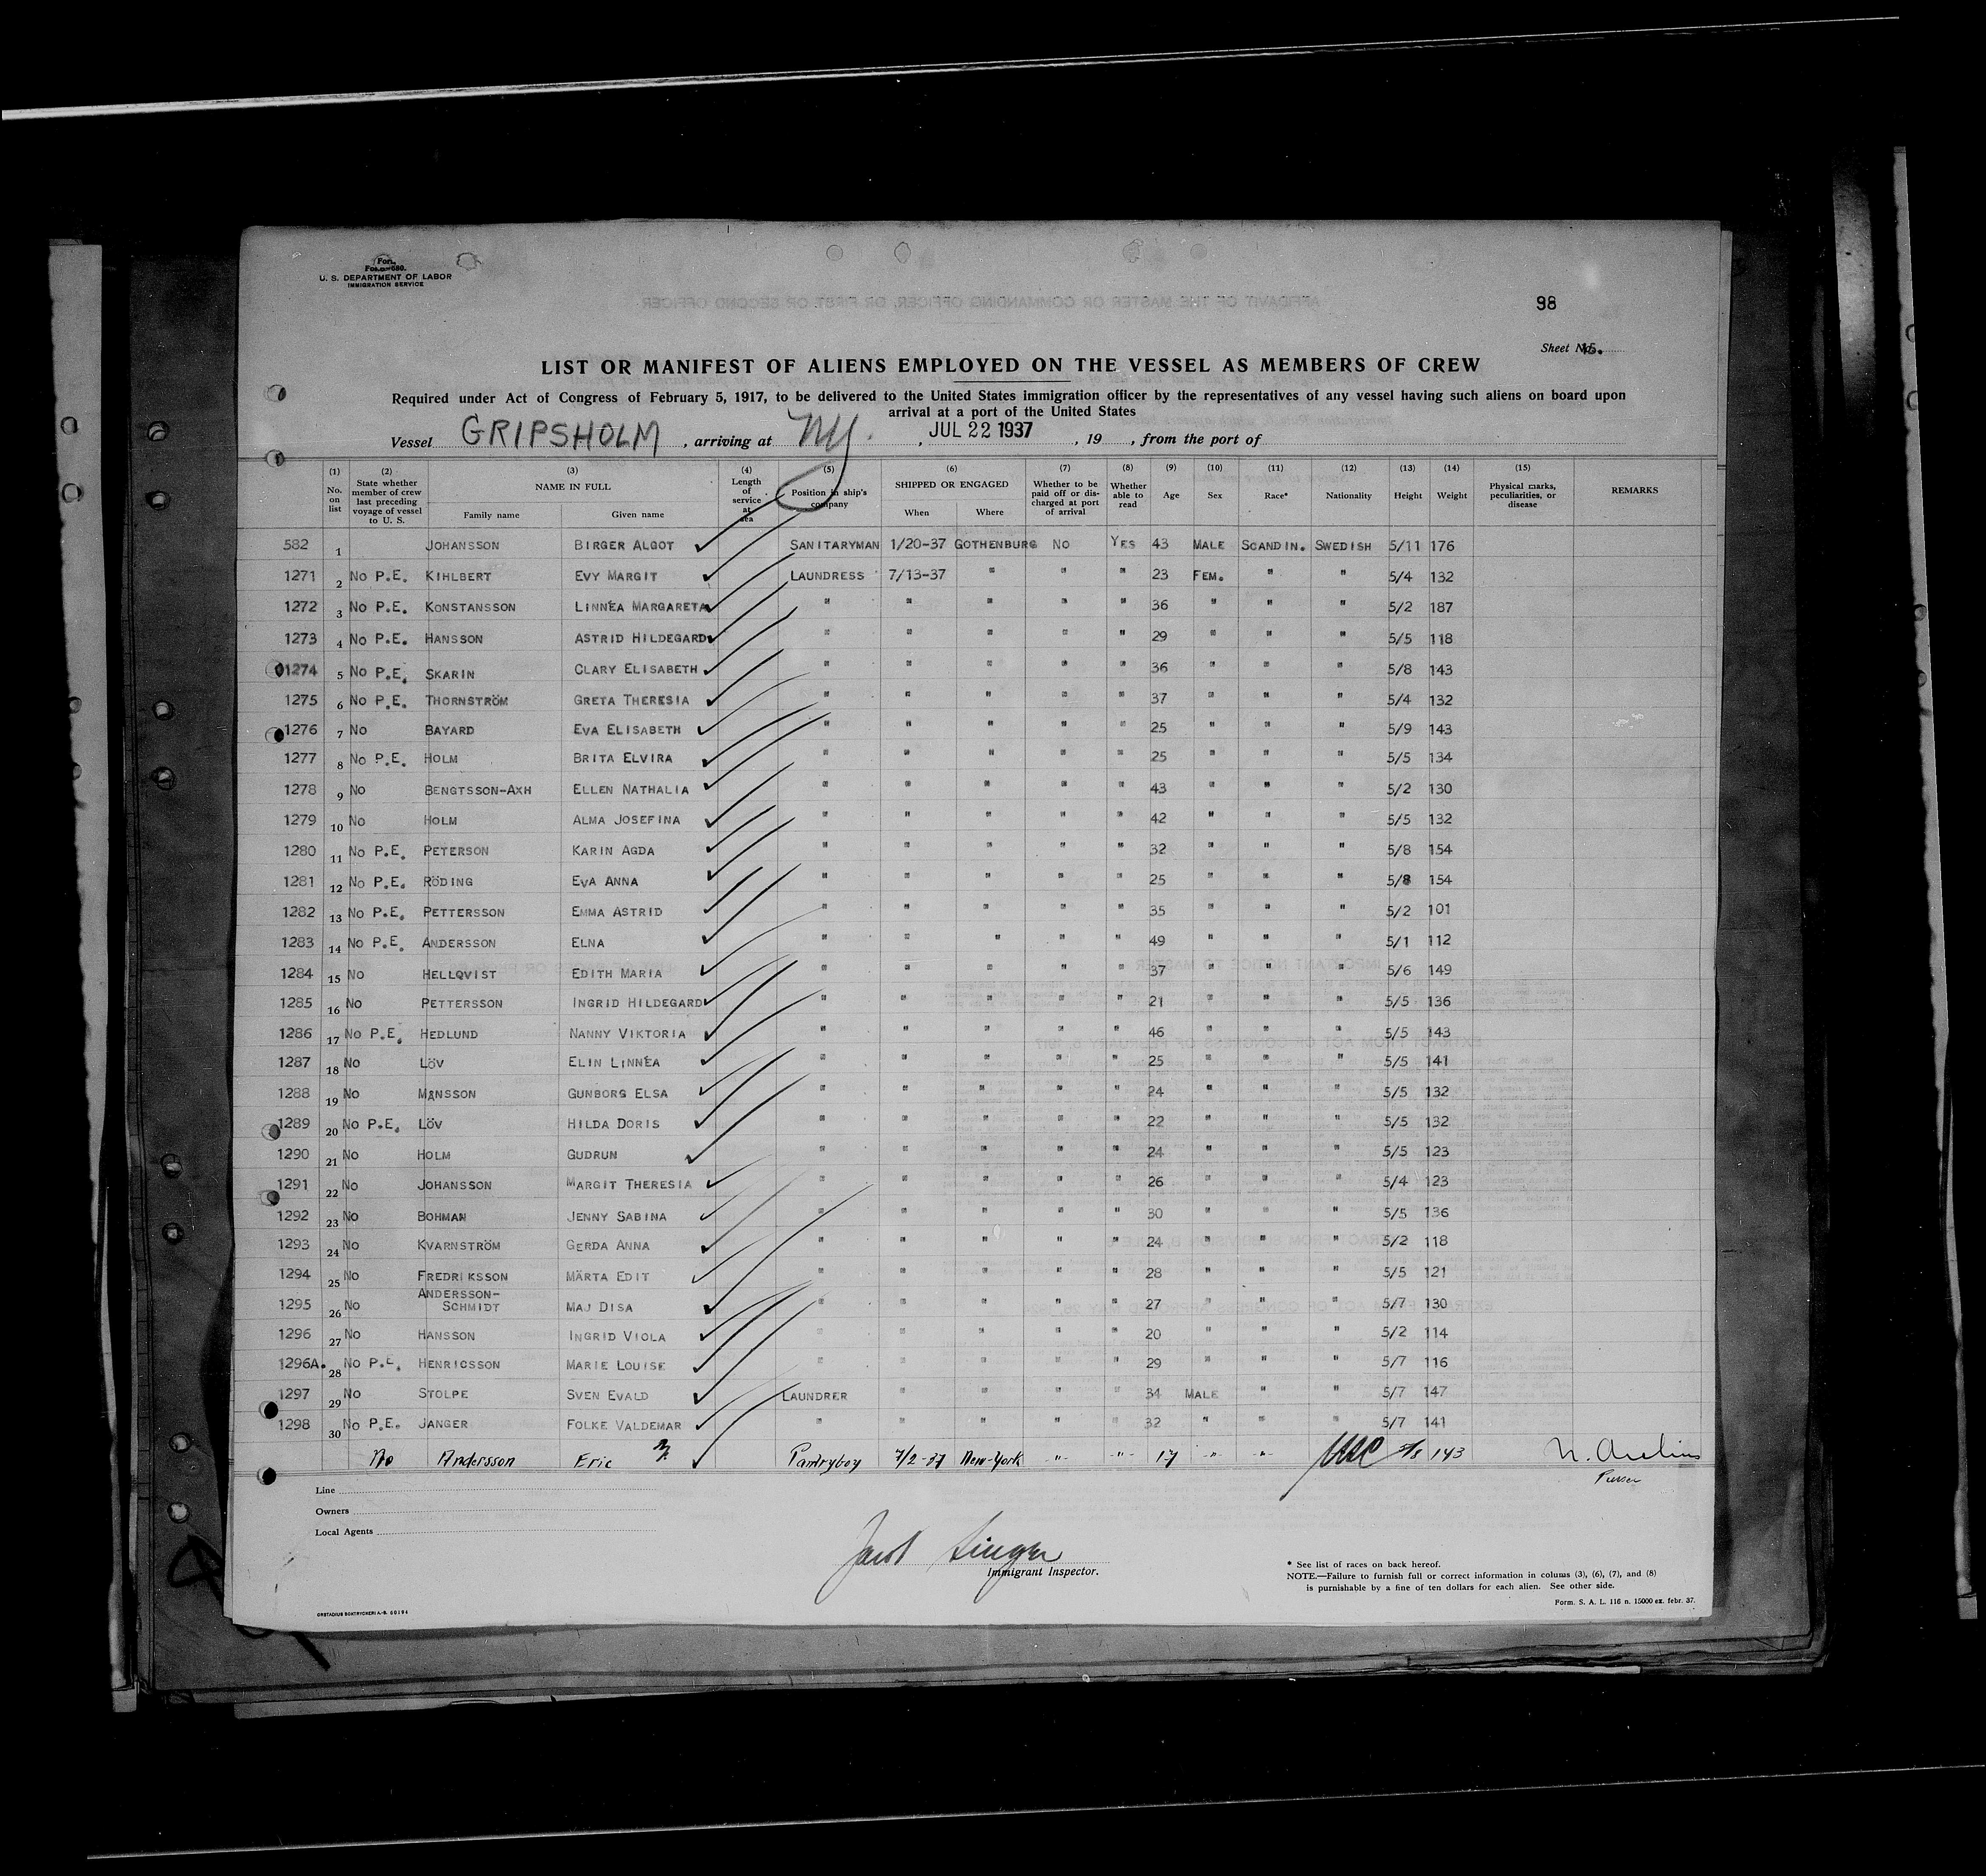 U. S. DEPARTMENT OF LABOR
IMMIGRATION SERVICE
98
Sheet No. 15.
LIST OR MANIFEST OF ALIENS EMPLOYED ON THE VESSEL AS MEMBERS OF CREW
Required under Act of Congress of February 5, 1917, to be delivered to the United States immigration officer by the representatives of any vessel having such aliens on board upon
arrival at a port of the United States
Vessel GRIPSHOLM, arriving at NY., JUL 22 1937, 19 , from the port of
(1) No. on list (2) State whether member of crew last preceding voyage of vessel to U. S. (3) NAME IN FULL Family name Given name (4) Length of service at sea (5) Position in ship's company (6) SHIPPED OR ENGAGED When Where (7) Whether to be paid off or discharged at port of arrival (8) Whether able to read (9) Age (10) Sex (11) Race* (12) Nationality (13) Height (14) Weight (15) Physical marks, peculiarities, or disease REMARKS
582 1 JOHANSSON BIRGER ALGOT SANITARYMAN 1/20-37 GOTHENBURG NO YES 43 MALE SCANDIN. SWEDISH 5/11 176
1271 2 NO P.E. KIHLBERT EVY MARGIT LAUNDRESS 7/13-37 " " " 23 FEM. " " 5/4 132
1272 3 NO P.E. KONSTANSSON LINNÉA MARGARETA " " " " " 36 " " " 5/2 187
1273 4 NO P.E. HANSSON ASTRID HILDEGARD " " " " " 29 " " " 5/5 118
1274 5 NO P.E. SKARIN CLARY ELISABETH " " " " " 36 " " " 5/8 143
1275 6 NO P.E. THORNSTRÖM GRETA THERESIA " " " " " 37 " " " 5/4 132
1276 7 NO BAYARD EVA ELISABETH " " " " " 25 " " " 5/9 143
1277 8 NO P.E. HOLM BRITA ELVIRA " " " " " 25 " " " 5/5 134
1278 9 NO BENGTSSON-AXH ELLEN NATHALIA " " " " " 43 " " " 5/2 130
1279 10 NO HOLM ALMA JOSEFINA " " " " " 42 " " " 5/5 132
1280 11 NO P.E. PETERSON KARIN AGDA " " " " " 32 " " " 5/8 154
1281 12 NO P.E. RÖDING EVA ANNA " " " " " 25 " " " 5/8 154
1282 13 NO P.E. PETTERSSON EMMA ASTRID " " " " " 35 " " " 5/2 101
1283 14 NO P.E. ANDERSSON ELNA " " " " " 49 " " " 5/1 112
1284 15 NO HELLQVIST EDITH MARIA " " " " " 37 " " " 5/6 149
1285 16 NO PETTERSSON INGRID HILDEGARD " " " " " 21 " " " 5/5 136
1286 17 NO P.E. HEDLUND NANNY VIKTORIA " " " " " 46 " " " 5/5 143
1287 18 NO LÖV ELIN LINNÉA " " " " " 25 " " " 5/5 141
1288 19 NO MÅNSSON GUNBORG ELSA " " " " " 24 " " " 5/5 132
1289 20 NO P.E. LÖV HILDA DORIS " " " " " 22 " " " 5/5 132
1290 21 NO HOLM GUDRUN " " " " " 24 " " " 5/5 123
1291 22 NO JOHANSSON MARGIT THERESIA " " " " " 26 " " " 5/4 123
1292 23 NO BOHMAN JENNY SABINA " " " " " 30 " " " 5/5 136
1293 24 NO KVARNSTRÖM GERDA ANNA " " " " " 24 " " " 5/2 118
1294 25 NO FREDRIKSSON MÄRTA EDIT " " " " " 28 " " " 5/5 121
1295 26 NO ANDERSSON-SCHMIDT MAJ DISA " " " " " 27 " " " 5/7 130
1296 27 NO HANSSON INGRID VIOLA " " " " " 20 " " " 5/2 114
1296A. 28 NO P.E. HENRICSSON MARIE LOUISE " " " " " 29 " " " 5/7 116
1297 29 NO STOLPE SVEN EVALD LAUNDRER " " " " 34 MALE " " 5/7 147
1298 30 NO P.E. JANGER FOLKE VALDEMAR " " " " " 32 " " " 5/7 141
No Andersson Eric Pantryboy 7/2-37 New-York " " 17 " " 5/8 143
Purser
Line
Owners
Local Agents
Jacob Singer
Immigrant Inspector.
* See list of races on back hereof.
NOTE.—Failure to furnish full or correct information in colums (3), (6), (7), and (8)
is punishable by a fine of ten dollars for each alien. See other side.
ORSTADIUS BOKTRYCKERI A.-B. 60194
Form. S. A. L. 116 n. 15000 ex. febr. 37.